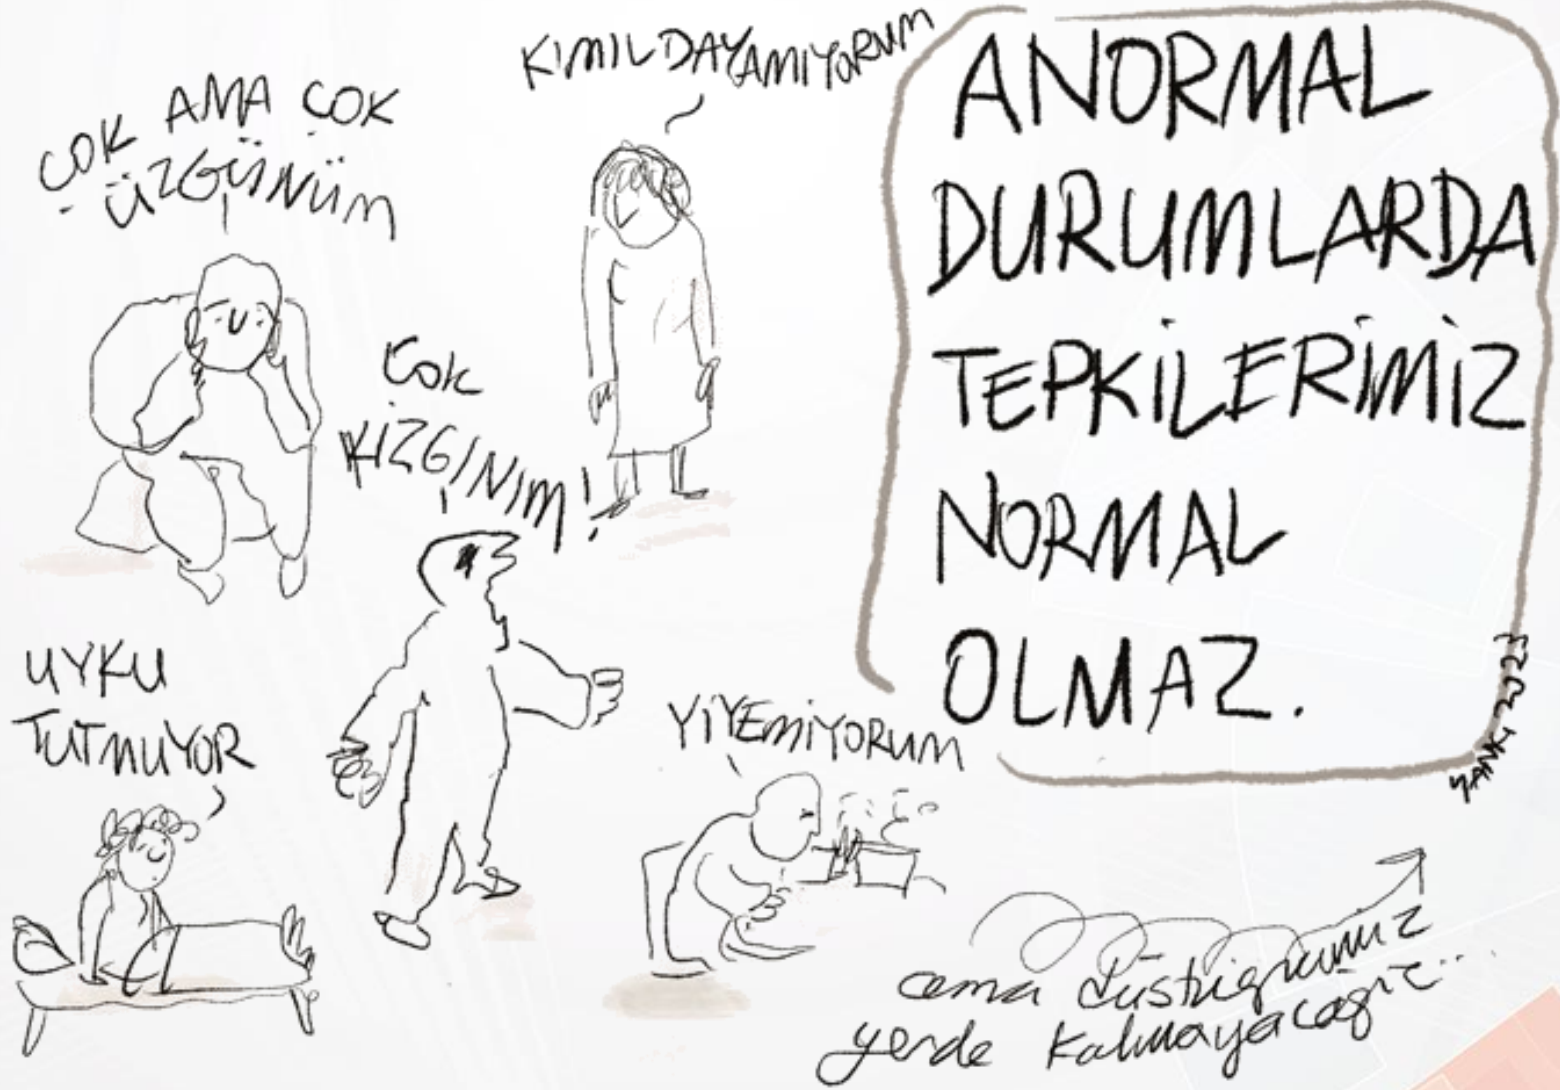 ÇOK AMA ÇOK
ÜZGÜNÜM
KIMILDAYAMIYORUM
ÇOK
KIZGINIM!
UYKU
TUTMUYOR
YİYEMİYORUM
ANORMAL
DURUMLARDA
TEPKİLERİMİZ
NORMAL
OLMAZ.
YANKI 2023
ama düştüğümüz
yerde kalmayacağız..